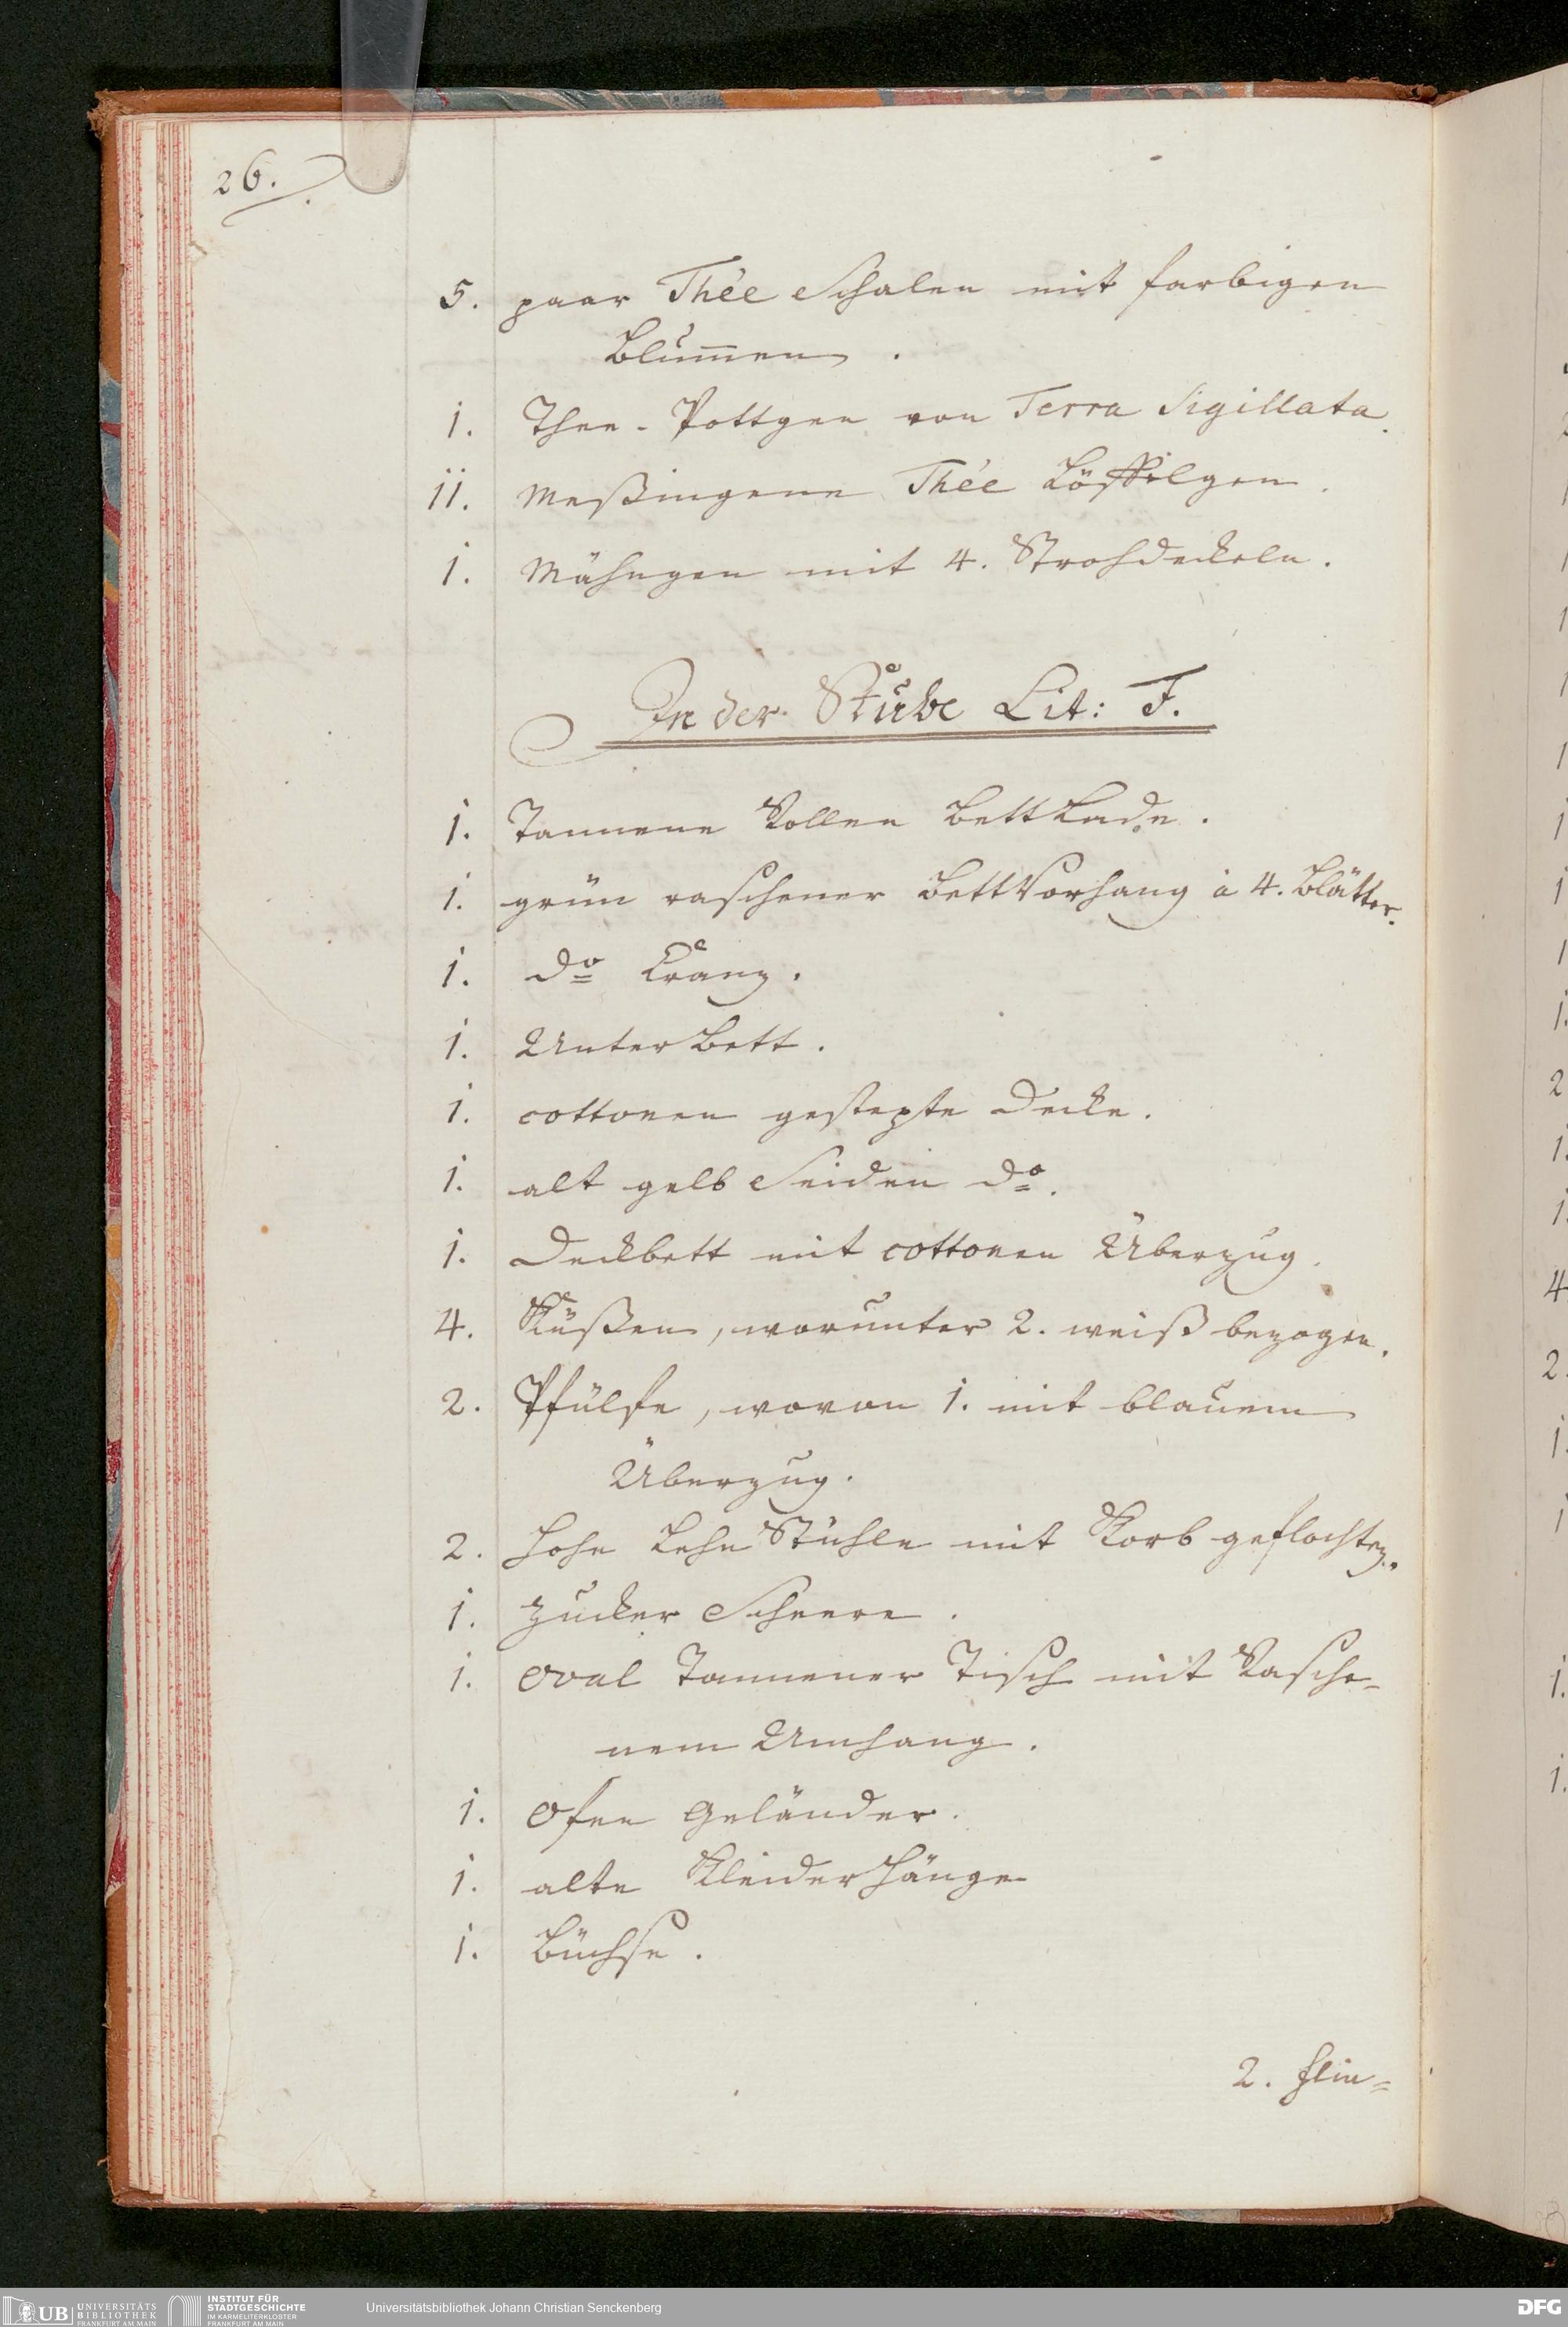 26.
5. paar Thée Schalen mit farbigen
Blum̅en.
1. Thee-Pottgen von Terra Sigillata.
11. Meßingene Thée Löffelgen.
1. Mähngen mit 4. Strohdeckeln.
In der Stube Lit: F.
1. Tannene Rollen Bettlade.
1. grün raschener Bettvorhang à 4. Blätter.
1. do Cranz.
1. Unterbett.
1. cottonen gestepte Decke.
1. alt gelb Seiden do.
1. Deckbett mit cottonen Überzug.
4. Küßen, worunter 2. weiß bezogen.
2. Pfülfe, wovon 1. mit blauem
Überzug.
2. hohe Lehn Stühle mit Korb geflochten.
1. Zucker Scheere.
1. oval Tannener Tisch mit Rasche-
nem Umhang.
1. Ofen Geländer.
1. alte Kleiderhänge
1. Büchse.
2. Flin=
UB UNIVERSITÄTS
BIBLIOTHEK
FRANKFURT AM MAIN
INSTITUT FÜR
STADTGESCHICHTE
IM KARMELITERKLOSTER
FRANKFURT AM MAIN
Universitätsbibliothek Johann Christian Senckenberg
DFG